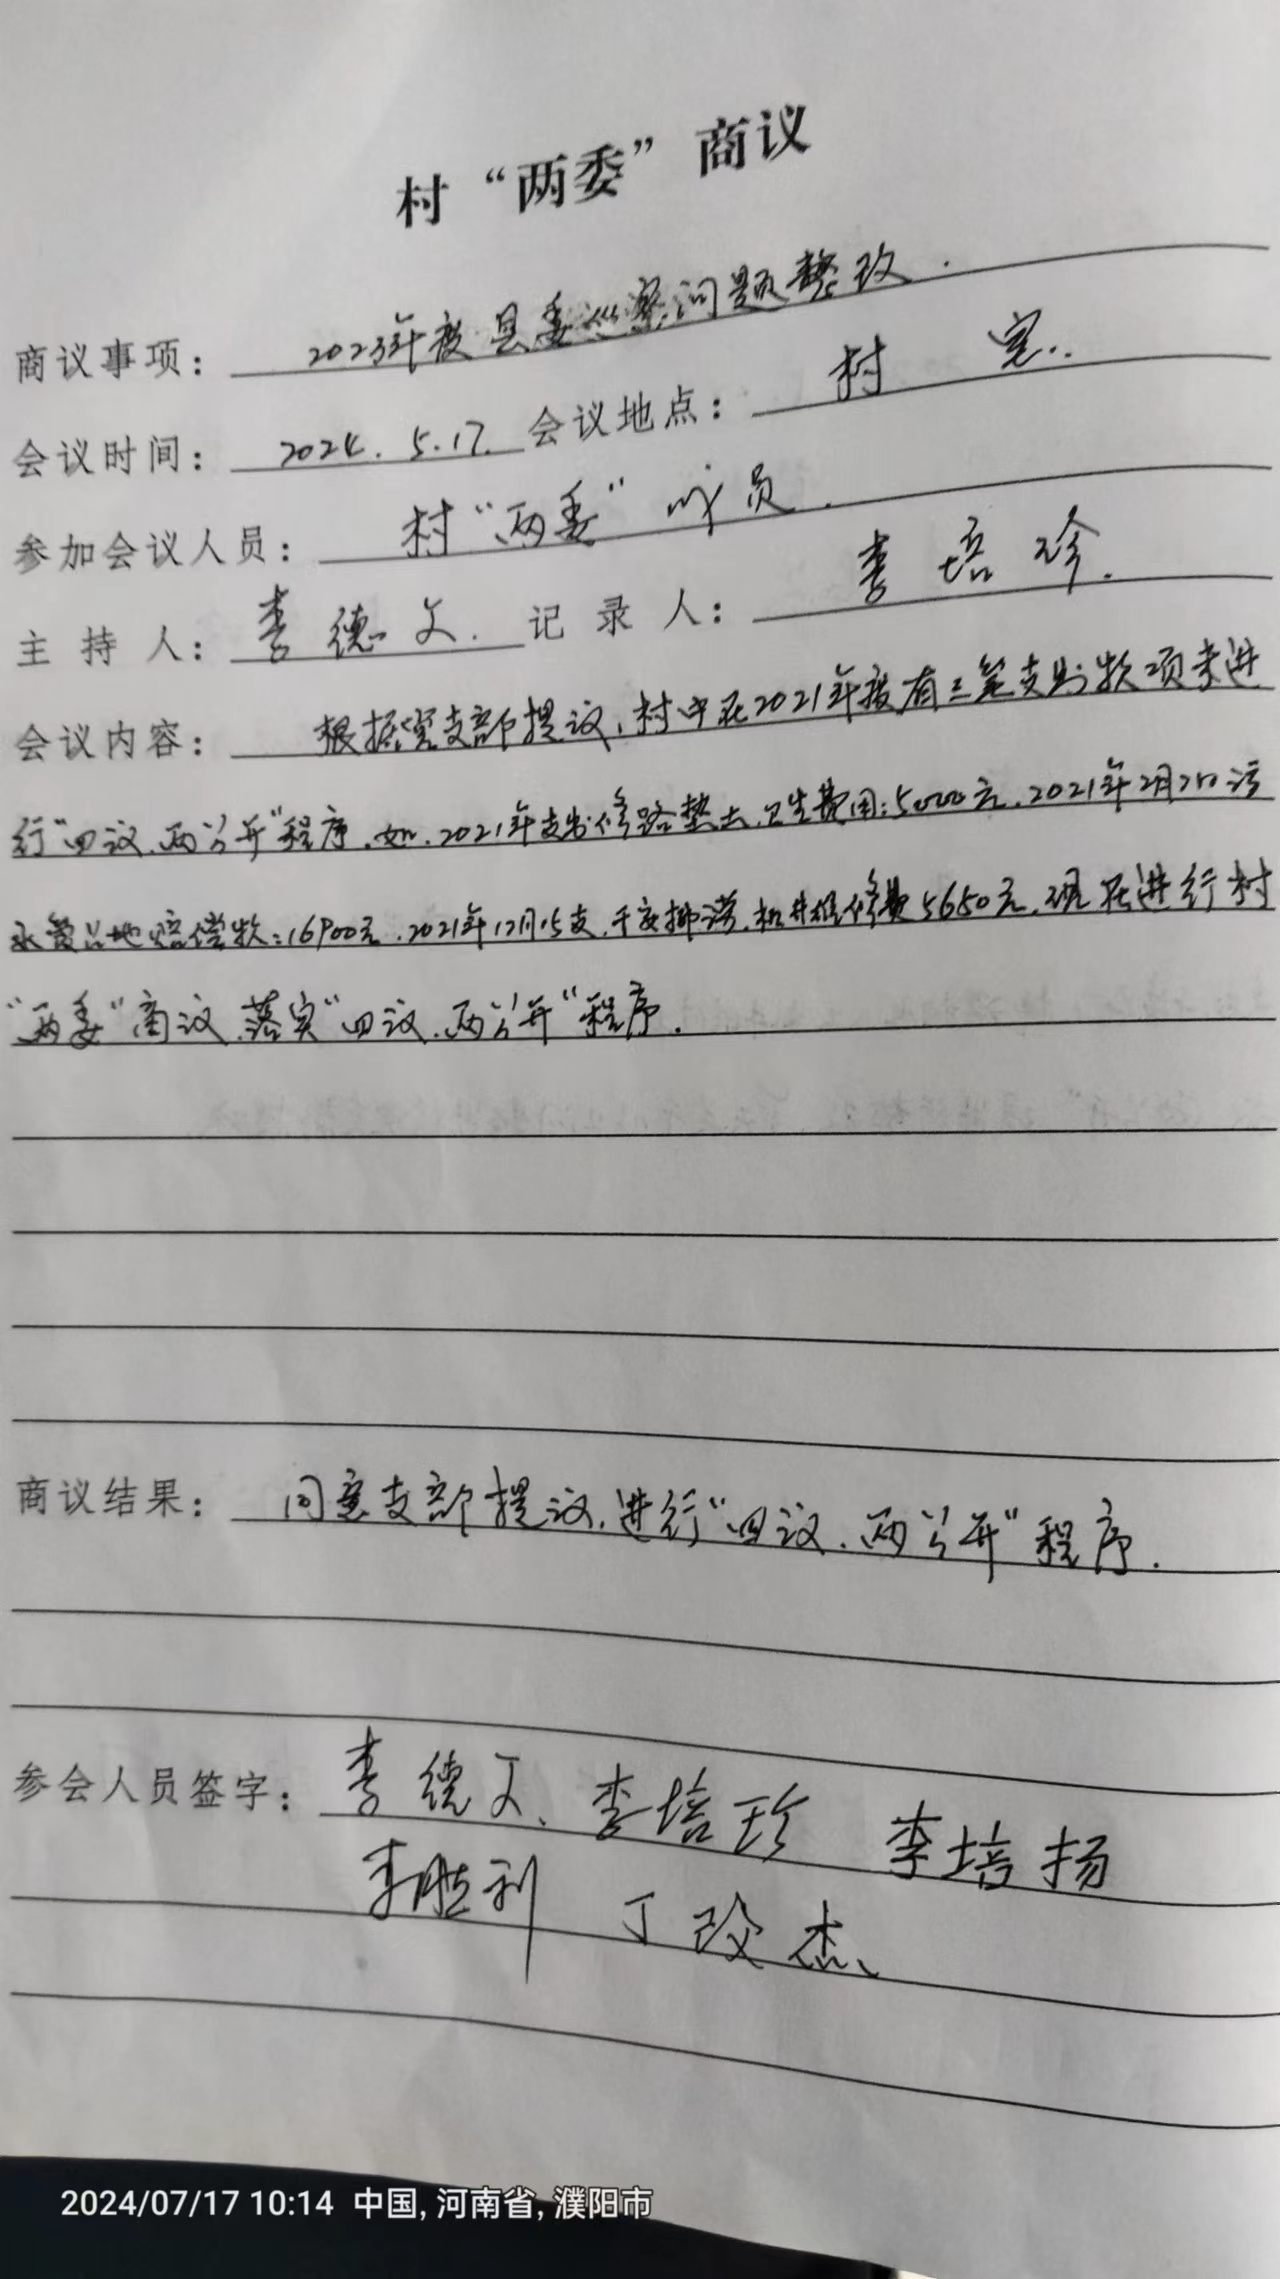 村“两委”商议
商议事项：2023年度县委巡察问题整改.
会议时间：2024.5.17. 会议地点：村室.
参加会议人员：村“两委”成员.
主持人：李德文. 记录人：李培珍.
会议内容：根据党支部提议，村中在2021年度有三笔支出款项未进
行“四议、两公开”程序.如.2021年支出修路垫土.卫生费用:5000元.2021年2月 污
水管占地赔偿款:16900元.2021年12月15支.干交排涝.机井维修费5650元.现在进行村
“两委”商议.落实“四议.两公开”程序.
商议结果：同意支部提议.进行“四议.两公开”程序.
参会人员签字：李德文、李培珍 李培扬
李胜利 丁改杰、
2024/07/17 10:14 中国, 河南省, 濮阳市